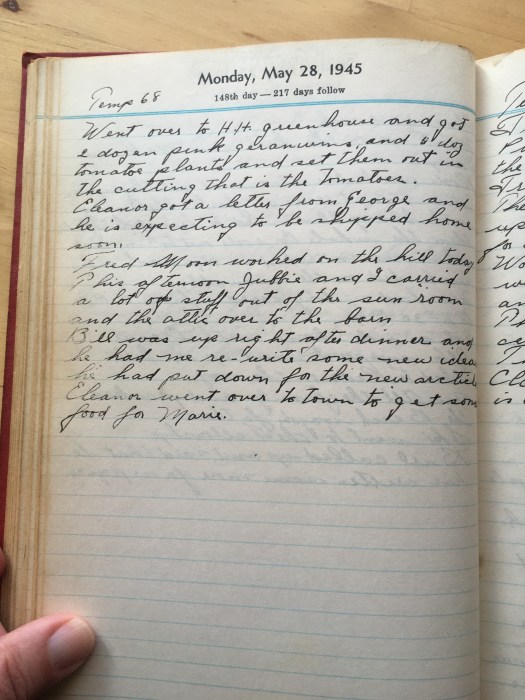 Monday, May 28, 1945
148th day — 217 days follow
Temp 68
Went over to H.H. greenhouse and got
a dozen pink geraniums and doz
tomatoe plants and set them out in
the cutting that is the tomatoes.
Eleanor got a letter from George and
he is expecting to be shipped home
soon.
Fred Moon worked on the hill today
This afternoon Jubbie and I carried
a lot of stuff out of the sun room
and the attic over to the barn
Bill was up right after dinner and
he had me re-write some new ideas
he had put down for the new article
Eleanor went over to town to get some
food for Marie.